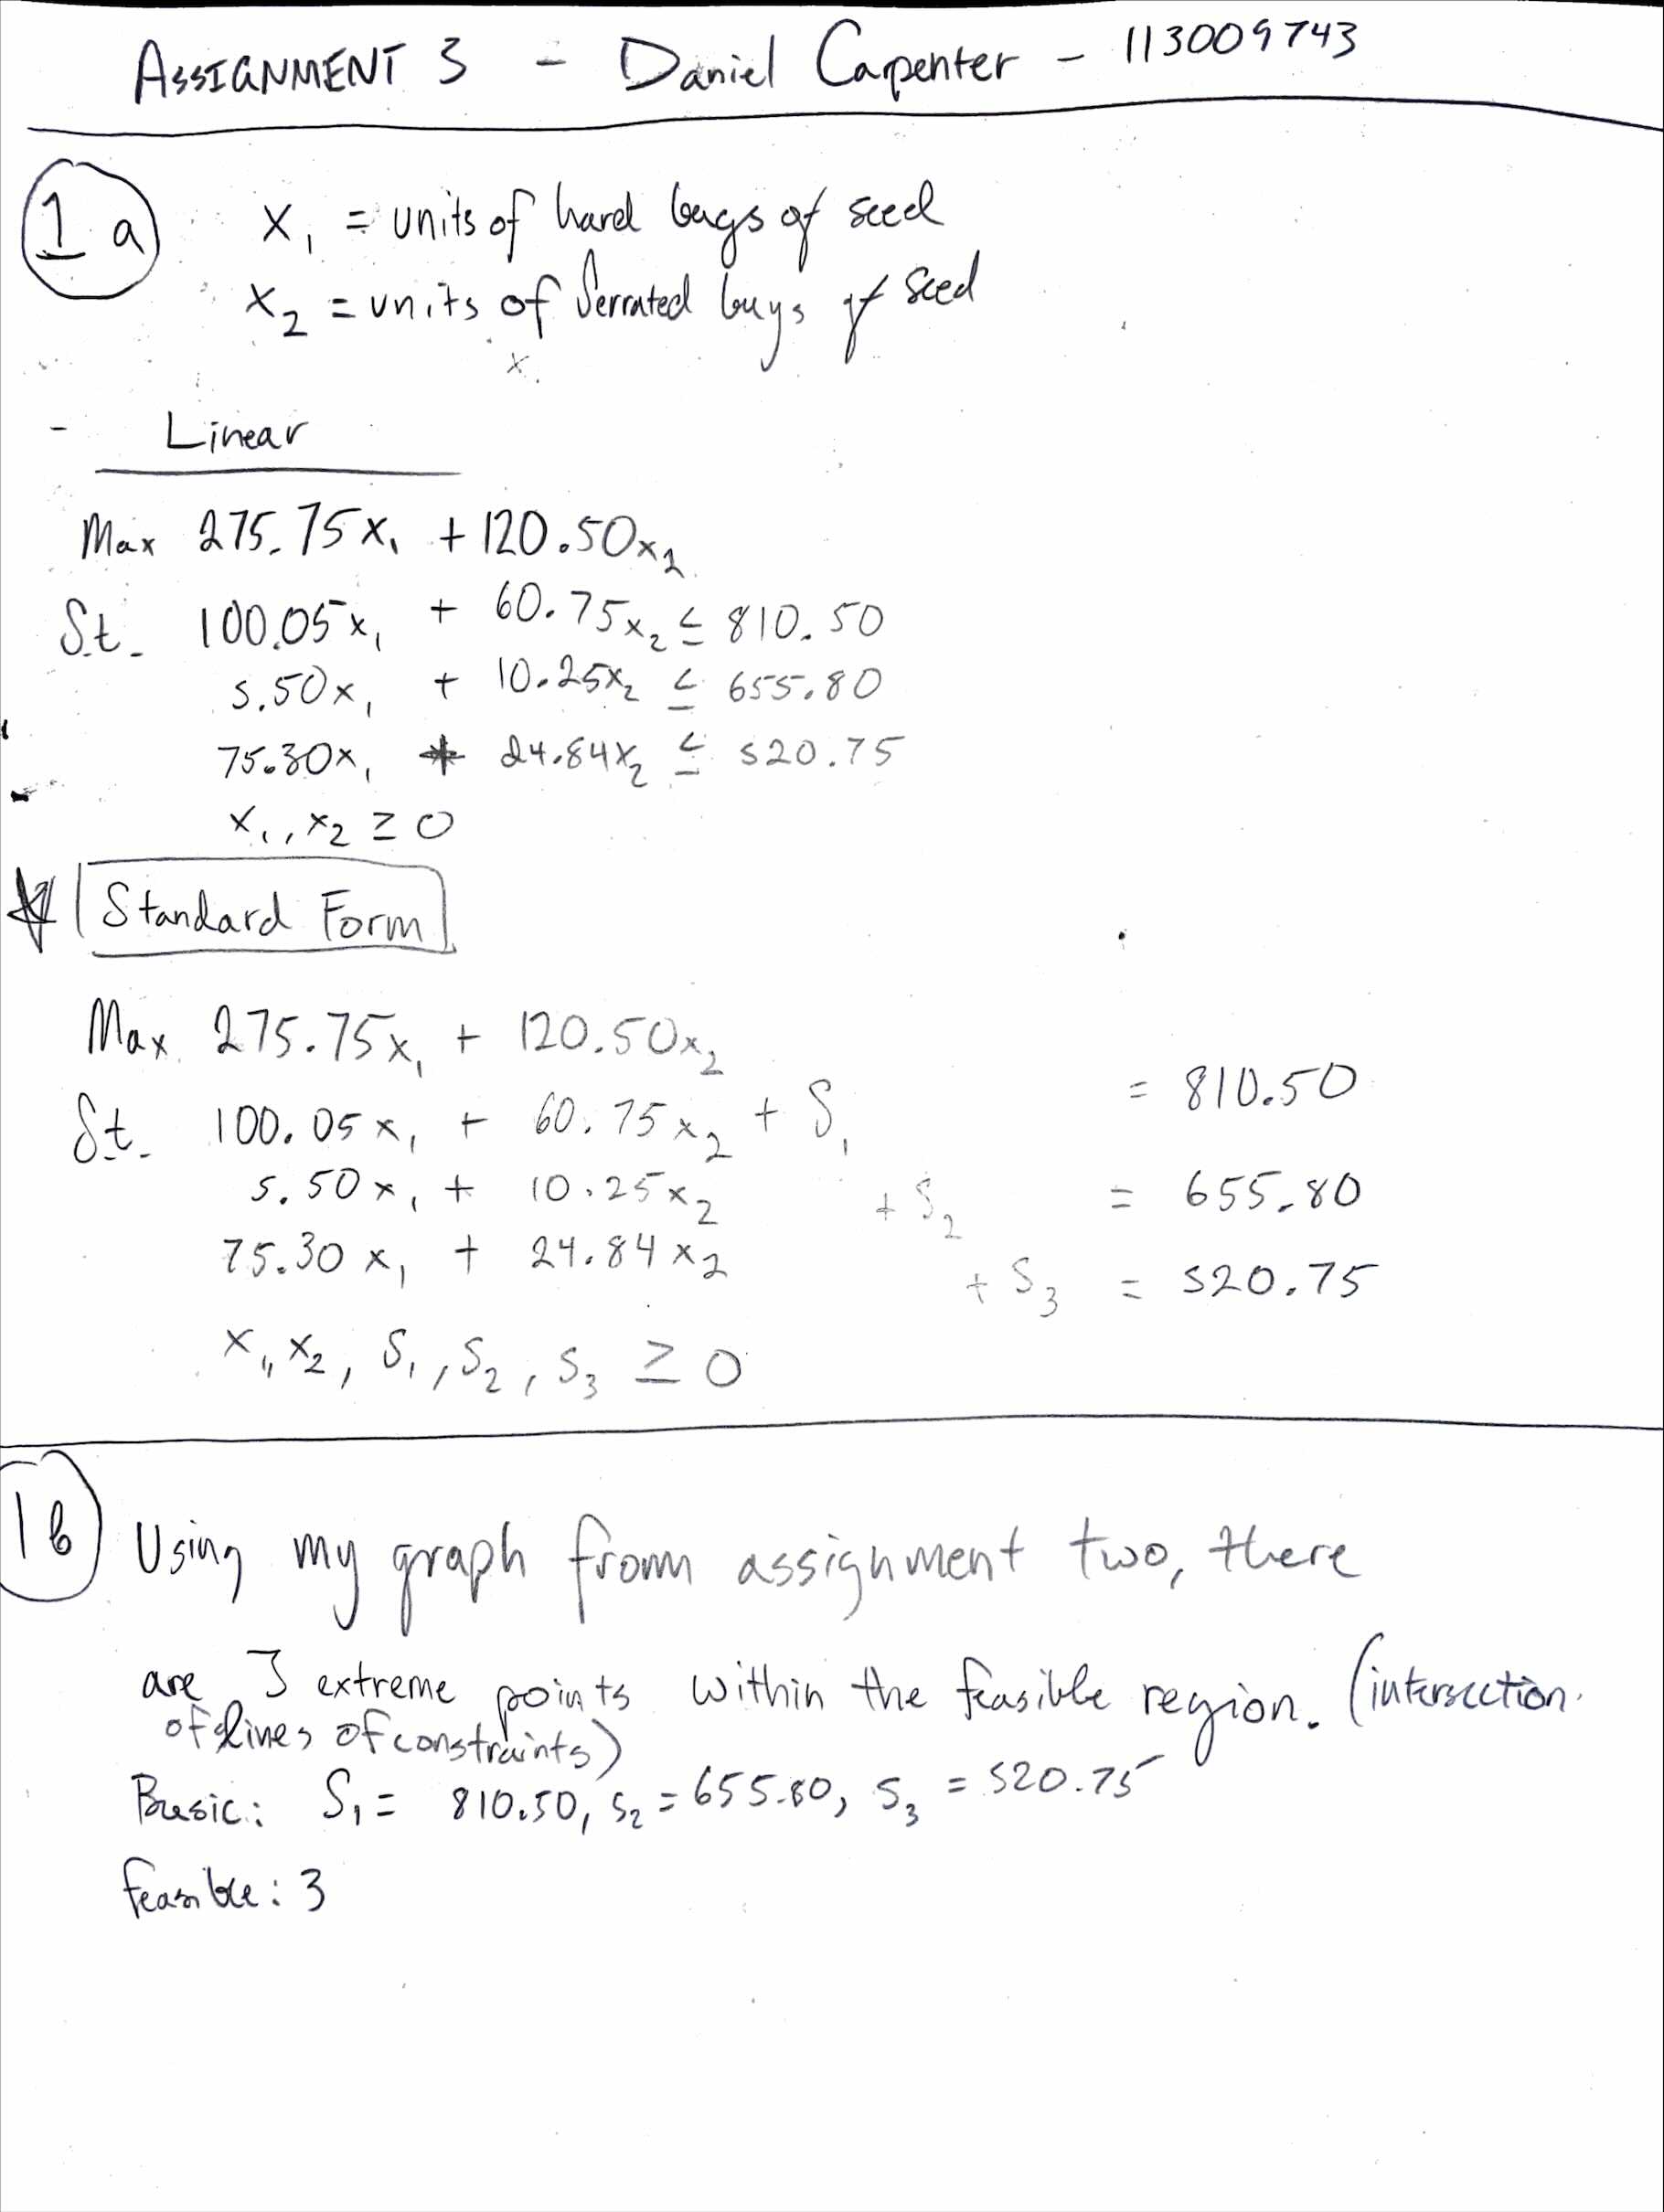 ASSIGNMENT 3 - Daniel Carpenter - 113009743
1 a
x₁ = units of hard bags of seed
x₂ = units of Serrated bags of seed
x.
- Linear
Max 275.75x₁ + 120.50x₂
St. 100.05x₁ + 60.75x₂ ≤ 810.50
5.50x₁ + 10.25x₂ ≤ 655.80
75.30x₁ + 24.84x₂ ≤ 520.75
x₁, x₂ ≥ 0
Standard Form
Max 275.75x₁ + 120.50x₂
St. 100.05x₁ + 60.75x₂ + S₁ = 810.50
5.50x₁ + 10.25x₂ + S₂ = 655.80
75.30x₁ + 24.84x₂ + S₃ = 520.75
x₁, x₂, S₁, S₂, S₃ ≥ 0
1b
Using my graph from assignment two, there
are 3 extreme points within the feasible region. (intersection
of lines of constraints)
Basic: S₁ = 810.50, S₂ = 655.80, S₃ = 520.75
feasible: 3